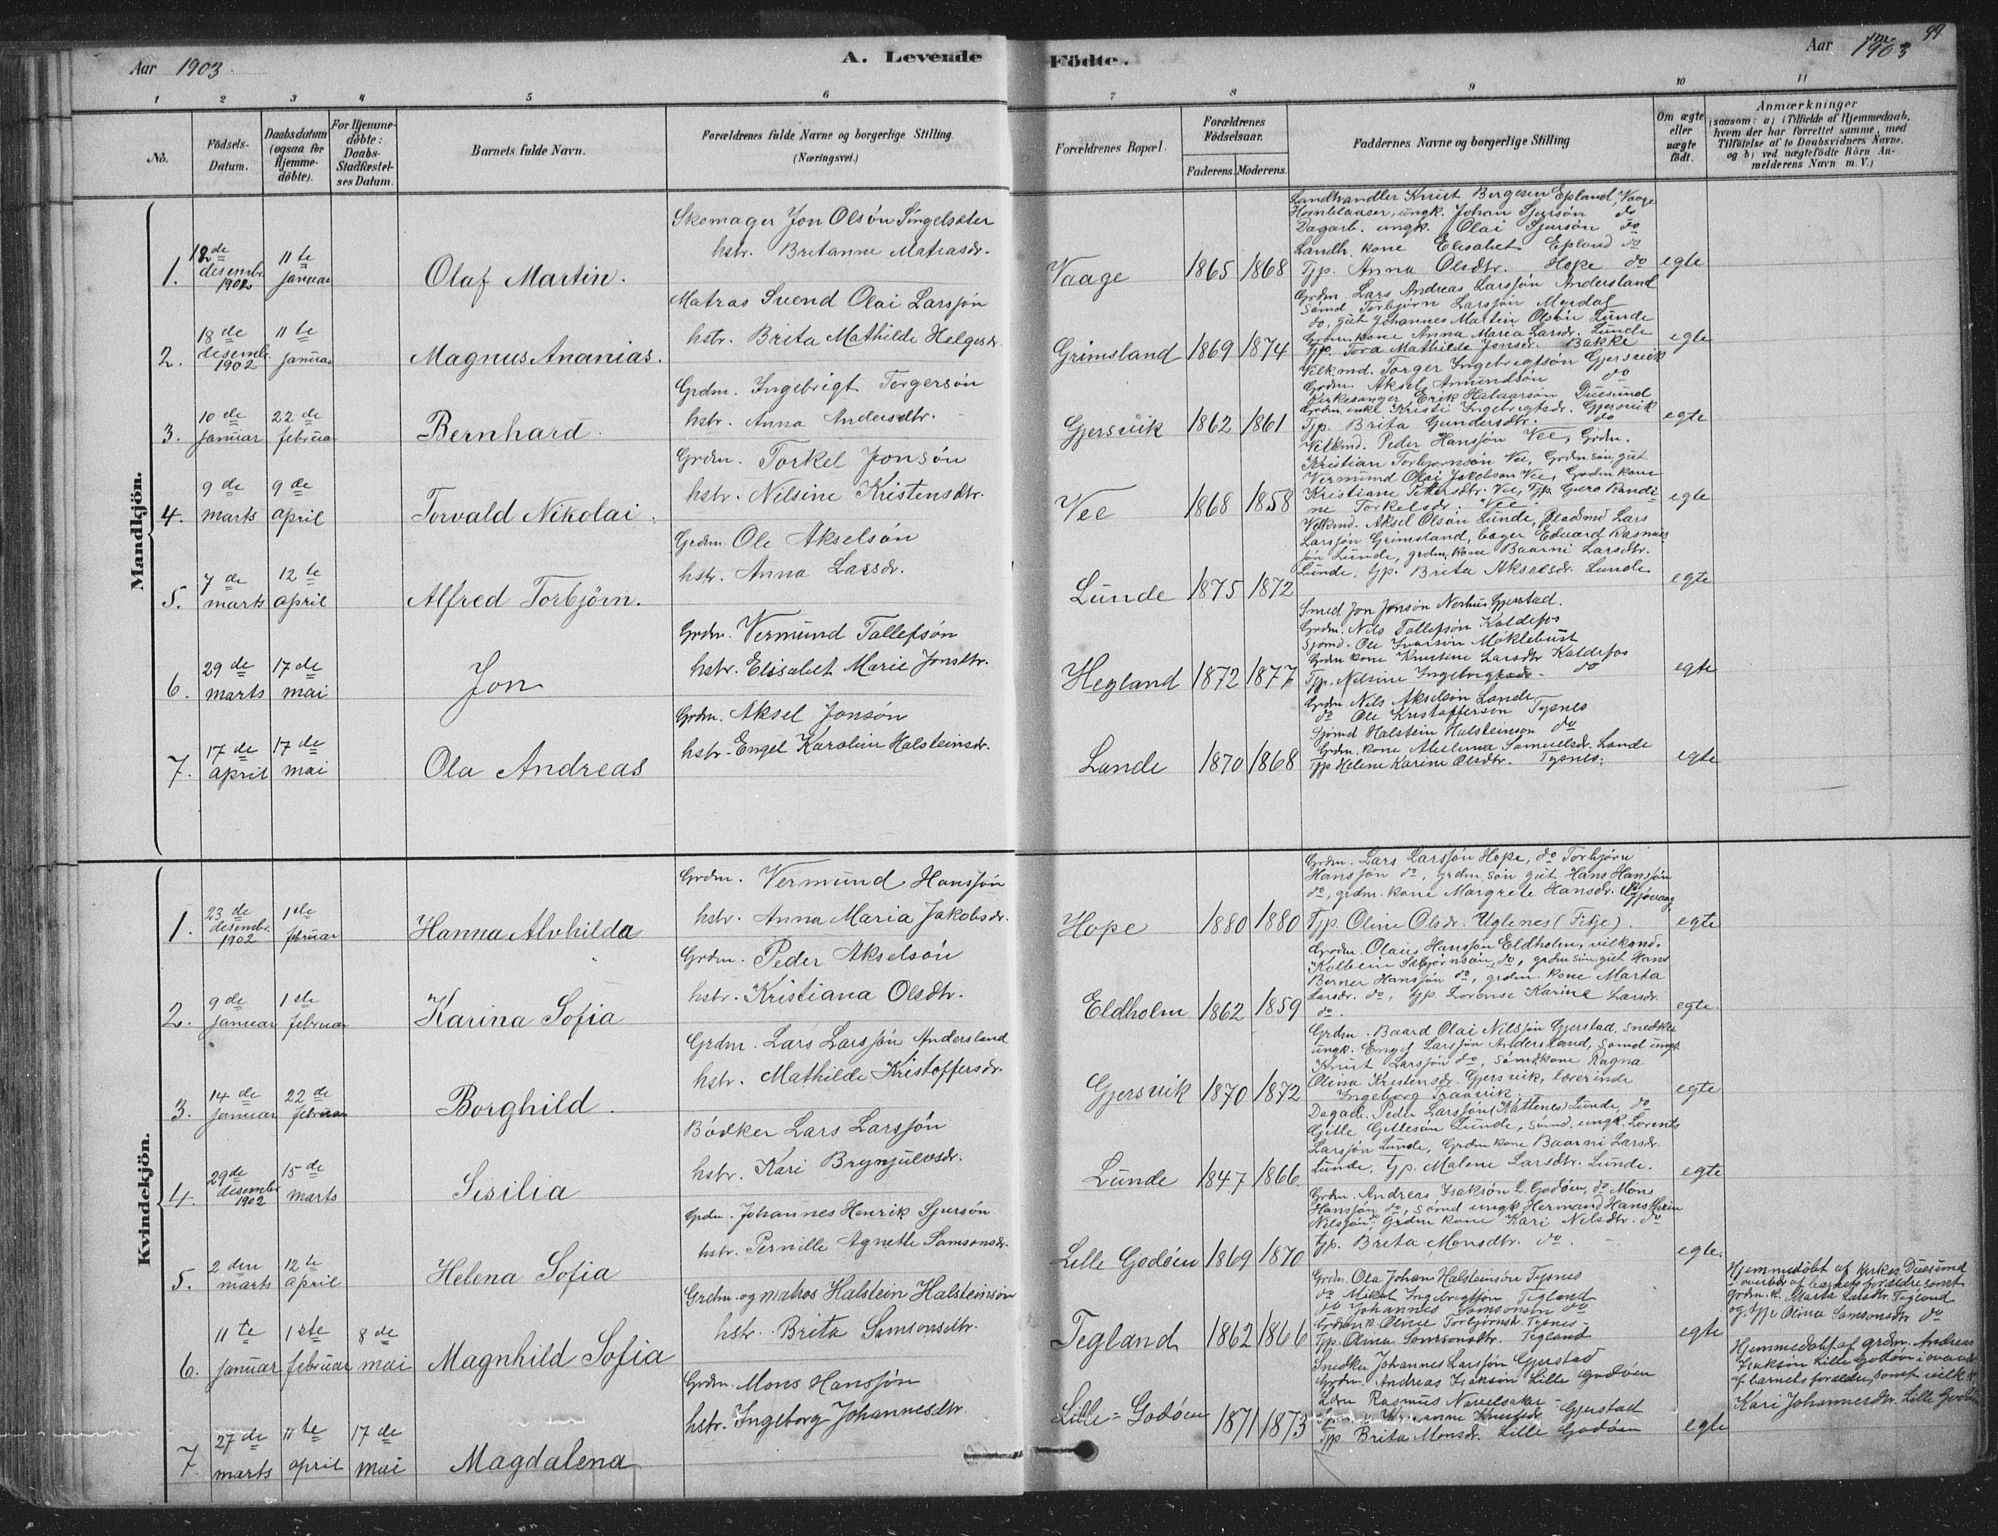 Aar 1903.
A. Levende Födte.
Aar 1903
99
1 2 3 4 5 6 7 8 9 10 11
No.
Födsels-
Datum.
Daabsdatum
(ogsaa for
Hjemme-
döbte).
For Hjemme-
döbte:
Daabs-
Stadfæstel-
ses Datum.
Barnets fulde Navn.
Forældrenes fulde Navne og borgerlige Stilling.
(Næringsvei.)
Forældrenes Bopæl.
Forældrenes
Födselsaar.
Faderens. Moderens.
Faddernes Navne og borgerlige Stilling
Om ægte
eller
uægte
födt.
Anmærkninger
(saasom: a) i Tilfælde af Hjemmedaab,
hvem der har forrettet samme, med
Tilföielse af to Daabsvidners Navne,
og b) ved uægtefödte Börn An-
melderens Navn m. V.)
Mandkjön.
1.
12de
desembr.
1902
11te
januar
Olaf Martin.
Skomager Jon Olsön Singelsæter
hstr. Britanne Matiasdr.
Vaage
1865 1868
Landhandler Knut Bergesen Epland, Vaage
ungk. Johan Sjursön do
Dagarb. ungk. Olai Sjursön do
Landh. kone Elisabet Epland do
Tjp. Anna Olsdtr. Hope do
egte
2.
18de
desembr.
1902
11te
januar
Magnus Ananias.
Matros Svend Olai Larssön
hstr. Brita Mathilde Helgesdr.
Grimsland
1869 1874
Grdm. Lars Andreas Larssön Andersland
Sömd Torbjörn Larssön Myrdal
do, gut Johannes Martin Olsön Lunde
Grdm. kone Anna Maria Larsdr. Lunde
Tjp. Tora Mathilde Jonsdr. Bakke
egte
3.
10de
januar
22de
februar
Bernhard.
Grdm. Ingebrigt Torgersön
hstr. Anna Andersdtr.
Gjersvik
1862 1861
Vilk.md. Torger Ingebrigtsön Gjersvik
Grdm. Aksel Amundsön do
Kirkesanger Erik Halvarsön Duesund
Grdm. enke Kristi Ingebrigtsdr. Gjersvik
Tjp. Brita Gundersdtr. do
egte
4.
9de
marts
9de
april
Torvald Nikolai.
Grdm. Torkel Jonsön
hstr. Nilsine Kristensdtr.
Vee
1868 1858
Vilkmd. Peder Hanssön Vee, Grdm.
Kristian Torbjörnsön Vee, Grdm sön, gut
Vermund Olai Jakobson Vee, Grdm kone
Kristiane Pettersdtr. Vee, Tjp. Guro Randi-
ne Torkelsdr. Vee.
egte
5.
7de
marts
12te
april
Alfred Torbjörn.
Grdm. Ole Akselsön
hstr. Anna Larsdr.
Lunde
1875 1872
Vilkmd. Aksel Olsön Lunde, Pladsmd Lars
Larssön Grimsland, bager Eduard Rasmus-
sön Lunde, grdm. kone Baarni Larsdtr.
Lunde, tjp. Brita Akselsdr. Lunde
egte
6.
29de
marts
17de
mai
Jon
Grdm. Vermund Tollefsön
hstr. Elisabet Marie Jonsdtr.
Hegland
1872 1877
Smed Jon Jonsön Norhus Gjerstad.
Grdm. Nils Tollefsön Kaldefos
Sjömd. Ole Ivarsön Möklebust
Grdm kone Kristine Larsdtr Kaldefos
Tjp. Nelsine Ingebrigtsdr. do
egte
7.
17de
april
17de
mai
Ola Andreas
Grdm. Aksel Jonsön
hstr. Engel Karoline Halsteinsdr.
Lande
1870 1868
Grdm. Nils Akselsön Lande
do Ole Kristofferson Tysnes
Sjömd Halstein Halsteinson do
Grdm. kone Abeluna Samuelsdr. Lande
Tjp Helene Karine Olsdtr. Tysnes.
egte
Kvindekjön.
1.
23de
desembr.
1902
1ste
februar
Hanna Alvhilda
Grdm. Vermund Hanssön
hstr. Anna Maria Jakobsdr.
Hope
1880 1880
Grdm. Lars Larssön Hope, do Torbjörn
Hanssön do, grdm. sön gut Hans Hanssön
do, grdm. kone Margrete Hansdr.
Tjp. Oline Olsdr. Uglenes (Fitje).
egte
2.
9de
januar
1ste
februar
Karina Sofia
Grdm. Peder Akselsön
hstr. Kristiana Olsdtr.
Eldholm
1862 1859
Grdm. Olaus Hanssön Eldholm, vilkmd.
Kolbein Sæbjörnsön do, grdm. sön gut Hans
Berner Hanssön do, grdm. kone Marta
Larsdr. do, tjp. Lorense Karine Larsdr
do.
egte.
3.
14de
januar
22de
februar
Borghild.
Grdm. Lars Larssön Andersland
hstr. Mathilde Kristoffersdr.
Gjersvik
1870 1872
Grdm. Baard Olai Nilssön Gjerstad, snedker
ungk. Engel Larssön Andersland, sömd ungk.
Knut Larssön do, sömdkone Ragna
Olina Kristensdr. Gjersvik, lærerinde
Ingeborg Traavik
egte
4.
29de
desembr
1902
15de
marts
Sisilia
Bödker Lars Larssön
hstr. Kari Brynjulvsdr.
Lunde
1847 1866.
Dagarb. Peder Larssön (Kattenes) Lunde, do
Gitle Gitlesön Lunde, sömd. ungk. Lorents
Larssön Lunde, Grdm kone Baarni Larsdr.
Lunde, tjp. Malene Larsdtr. Lunde.
egte
5.
2den
marts
12te
april
Helena Sofia
Grdm. Johannes Henrik Sjursön
hstr. Pernille Agnette Samsonsdr.
Lille Godöen
1869 1870
Grdm. Andreas Isaksön L. Godöen, do Mons
Hanssön do, sömd ungk Herman Hans Thein
Nilssön do, Grdm kone Kari Nilsdtr. do
tjp. Brita Monsdtr. do.
egte.
6.
11te
januar
1ste
februar
8de
mai
Magnhild Sofia
Grdm. og matros Halstein Halsteinsön
hstr. Brita Samsonsdtr.
Tegland
1862 1866
Grdm. Ola Johan Halsteinsön Tysnes
do Mikal Ingebrigtsön Tegland
do Johannes Samsonson do
Grdm k. Oline Torbjörnsdr. Tysnes
Tjp. Olina Samsonsdtr. Tegland
egte
Hjemmedöbt af kirkes. Duesund
i overvær af barnets forældre samt
grdm. k. Marta Larsdtr. Tegland
og tjp Olina Samsonsdtr do
7.
27de
marts
11te
april
17de
mai
Magdalena
Grdm. Mons Hanssön
hstr. Ingeborg Johannesdtr.
Lille-Godöen
1871 1873
Snedker Johannes Larssön Gjerstad
Grdm. Andreas Isaksön Lille Godöen
Rasmus
Gjerstad
Tjp Brita Monsdr. Lille Godöen
egte
Hjemmedöbt af grdm. Andreas
Isaksön Lille Godöen i overvær
af barnets forældre, samt vilk. k.
Kari Johannesdtr. Lille Godöen